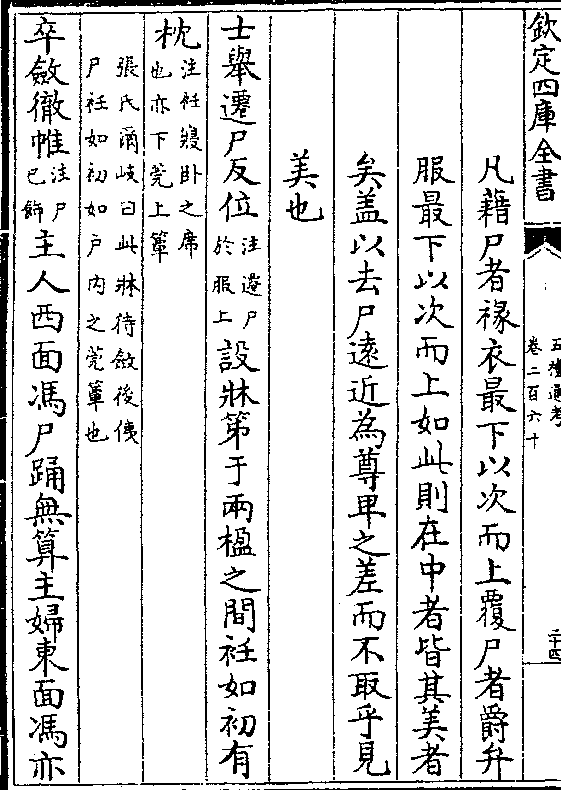 欽定四庫全書
五禮通考
卷二百六十
二十四
凡藉尸者褖衣最下以次而上覆尸者爵弁
服最下以次而上如此則在中者皆其美者
矣盖以去尸遠近為尊卑之差而不取乎見
美也
士舉遷尸反位注遷尸於服上設牀第于兩楹之間衽如初有
枕注衽寢卧之席也亦下莞上簟
張氏爾岐曰此牀待斂後侇
尸衽如初如户内之莞簟也
卒斂徹帷注尸已飾主人西面馮尸踊無算主婦東面馮亦